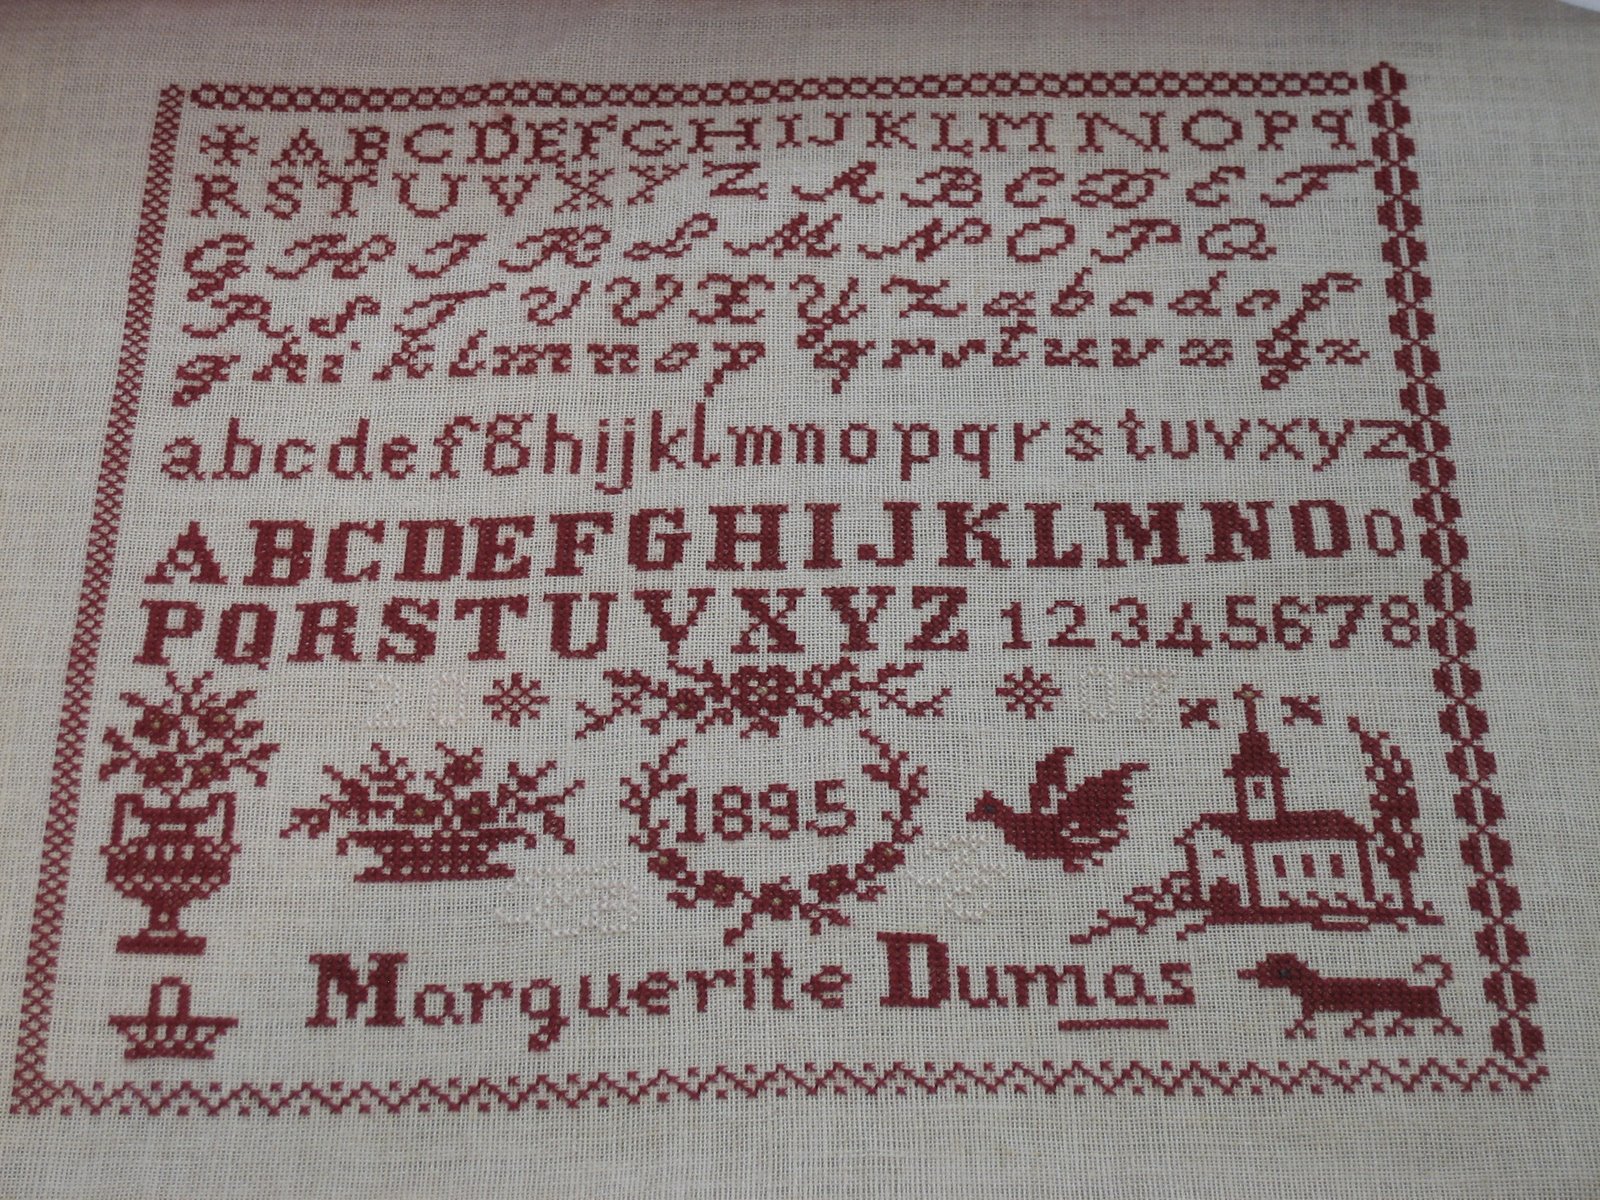 A B C D E F G H I J K L M N O P q
R S T U V X Y Z A B C D E F
G H I K L M N O P Q
R S T U V X Y Z a b c d e f
g h i k l m n o p q r s t u v x y z
a b c d e f g h i j k l m n o p q r s t u v x y z
A B C D E F G H I J K L M N O O
P Q R S T U V X Y Z 1 2 3 4 5 6 7 8
20 07
1895
Marguerite Dumas